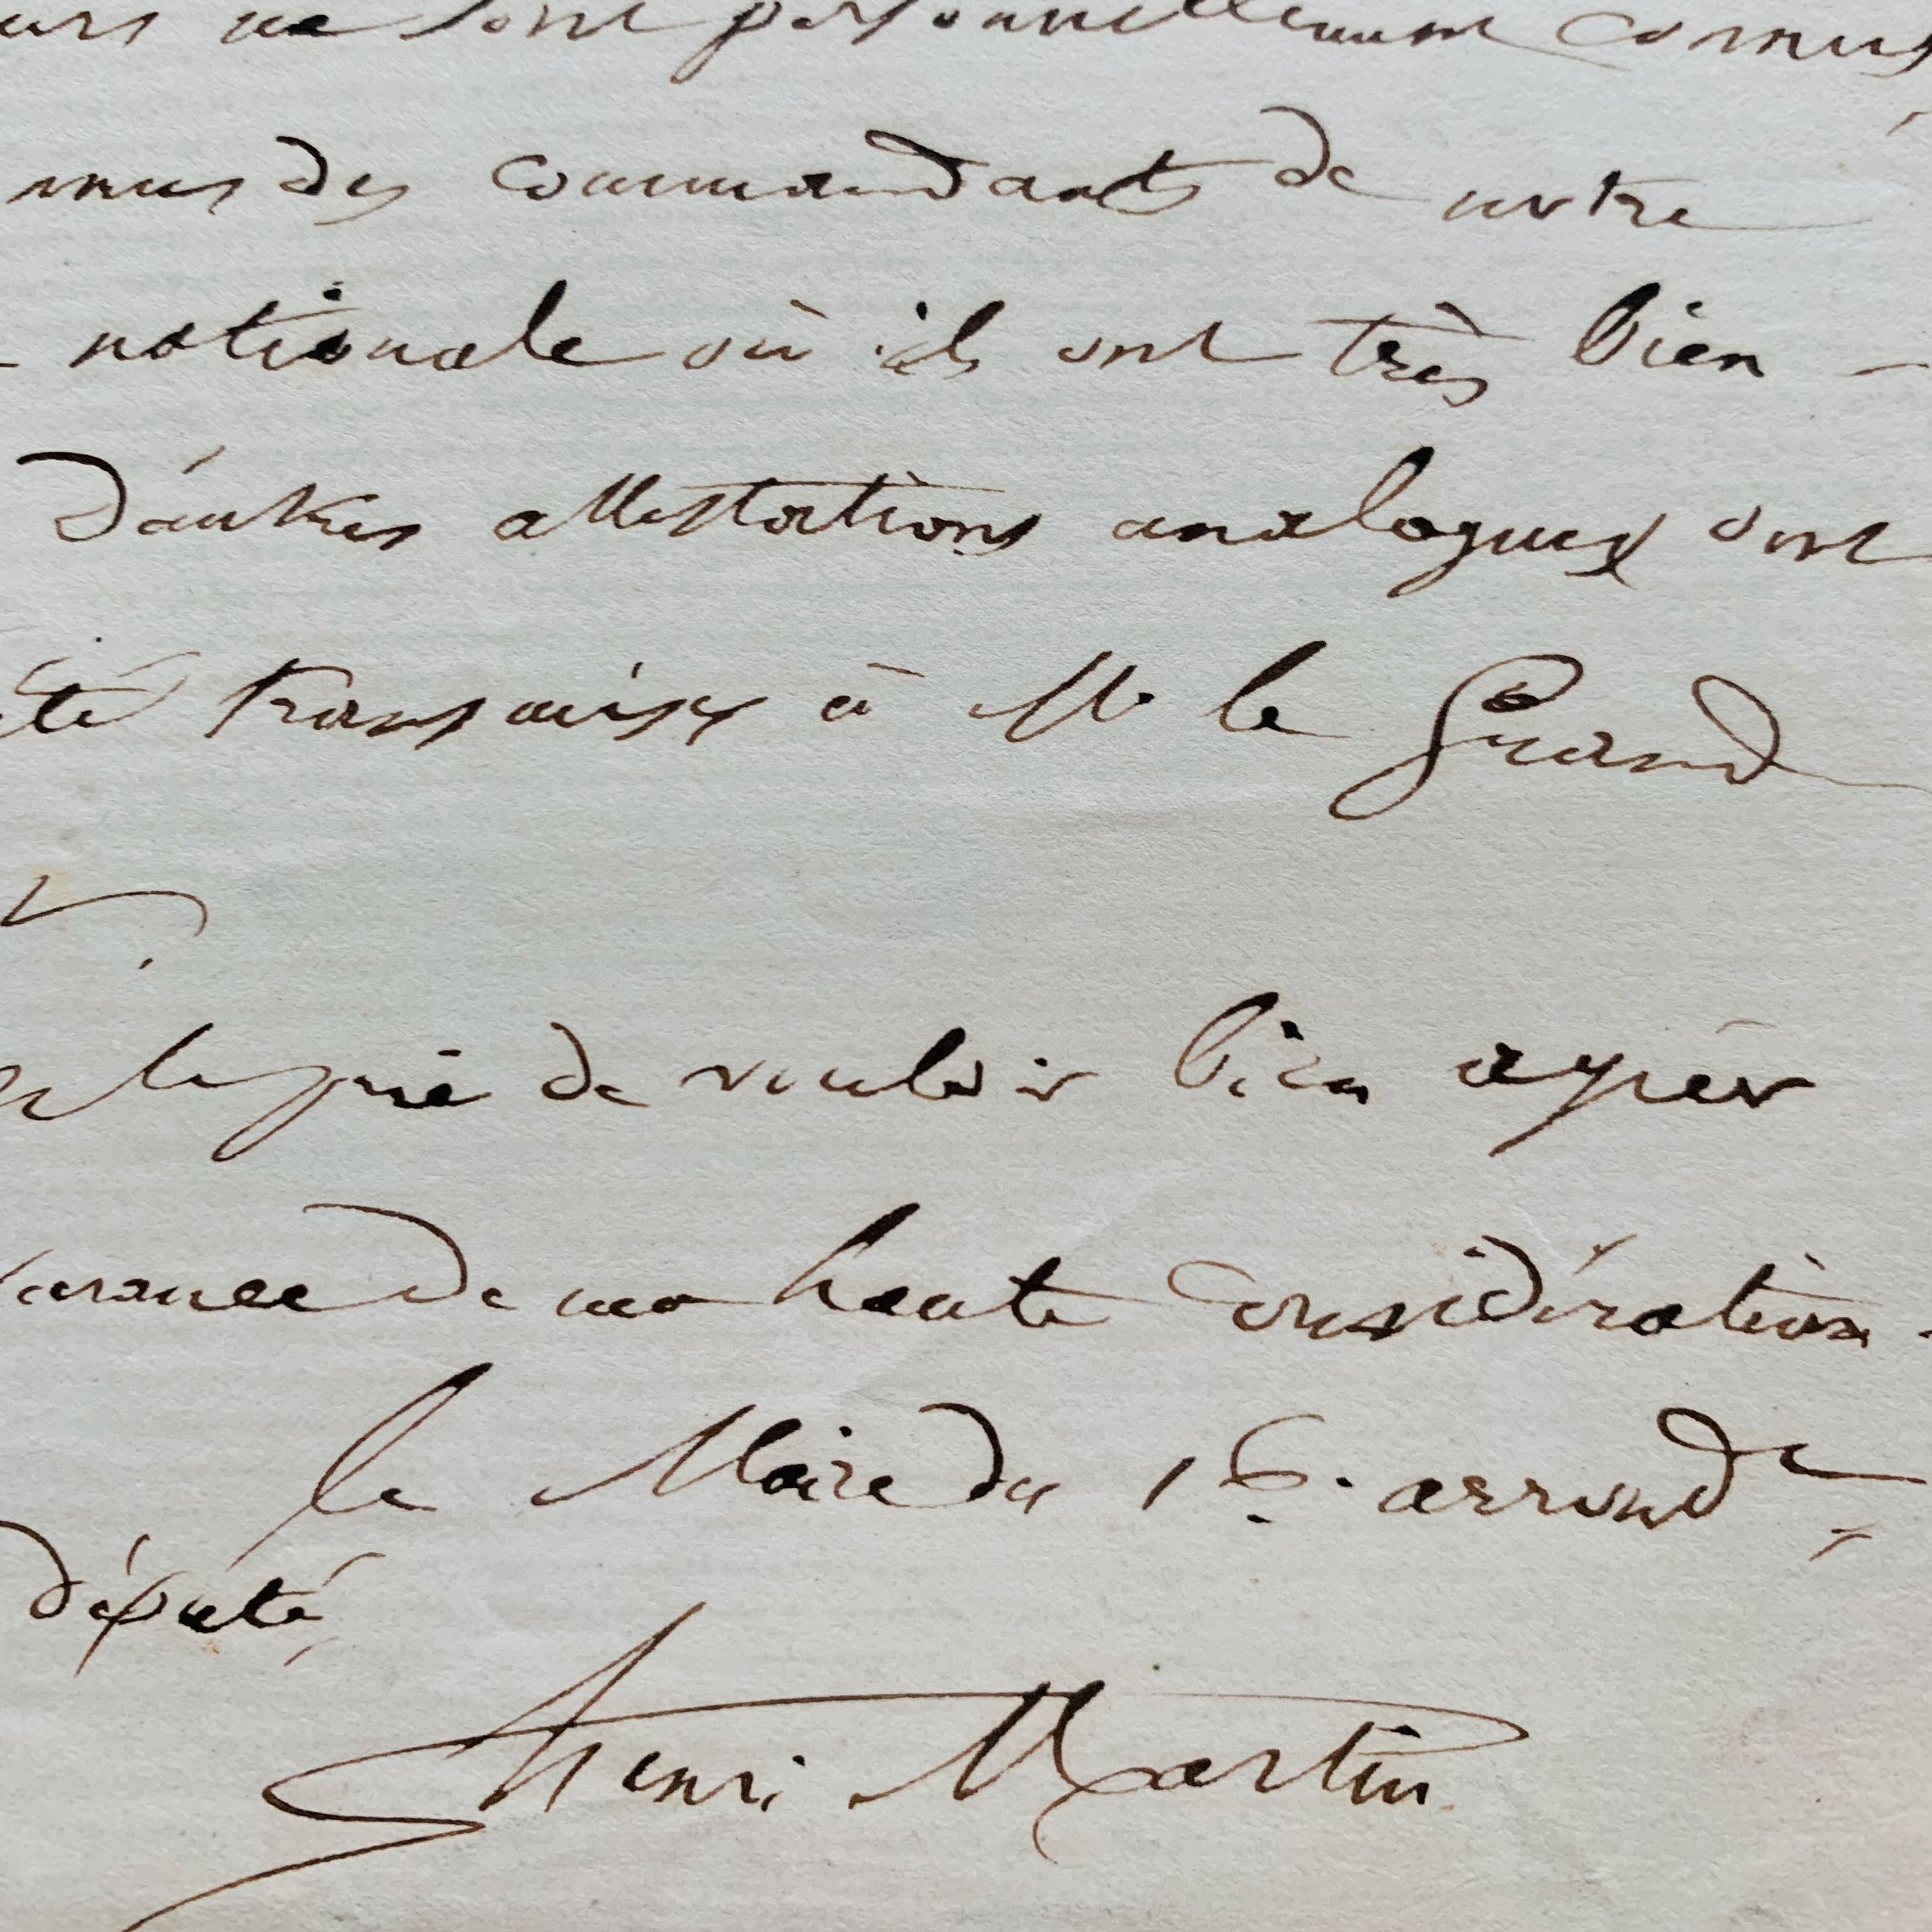 me sont personnellement connus
des commandants de notre
nationale où ils ont très bien -
D'autres attestations analogues ont
été transmises à M. le Grand
le prie de vouloir bien agréer
de ma haute considération.
le Maire du 16e. arrondt,
député,
Henri Martin